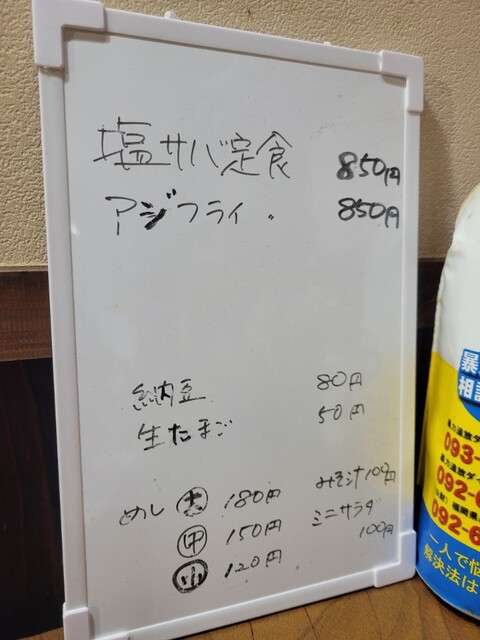 塩サバ定食 850円
アジフライ 〃 850円
納豆 80円
生たまご 50円
めし 大 180円
中 150円
小 120円
みそ汁 100円
ミニサラダ
100円
暴
相談
暴力追放ダ
093-
暴力追放ダイ
092-6
092-6
一人で悩
解決法は